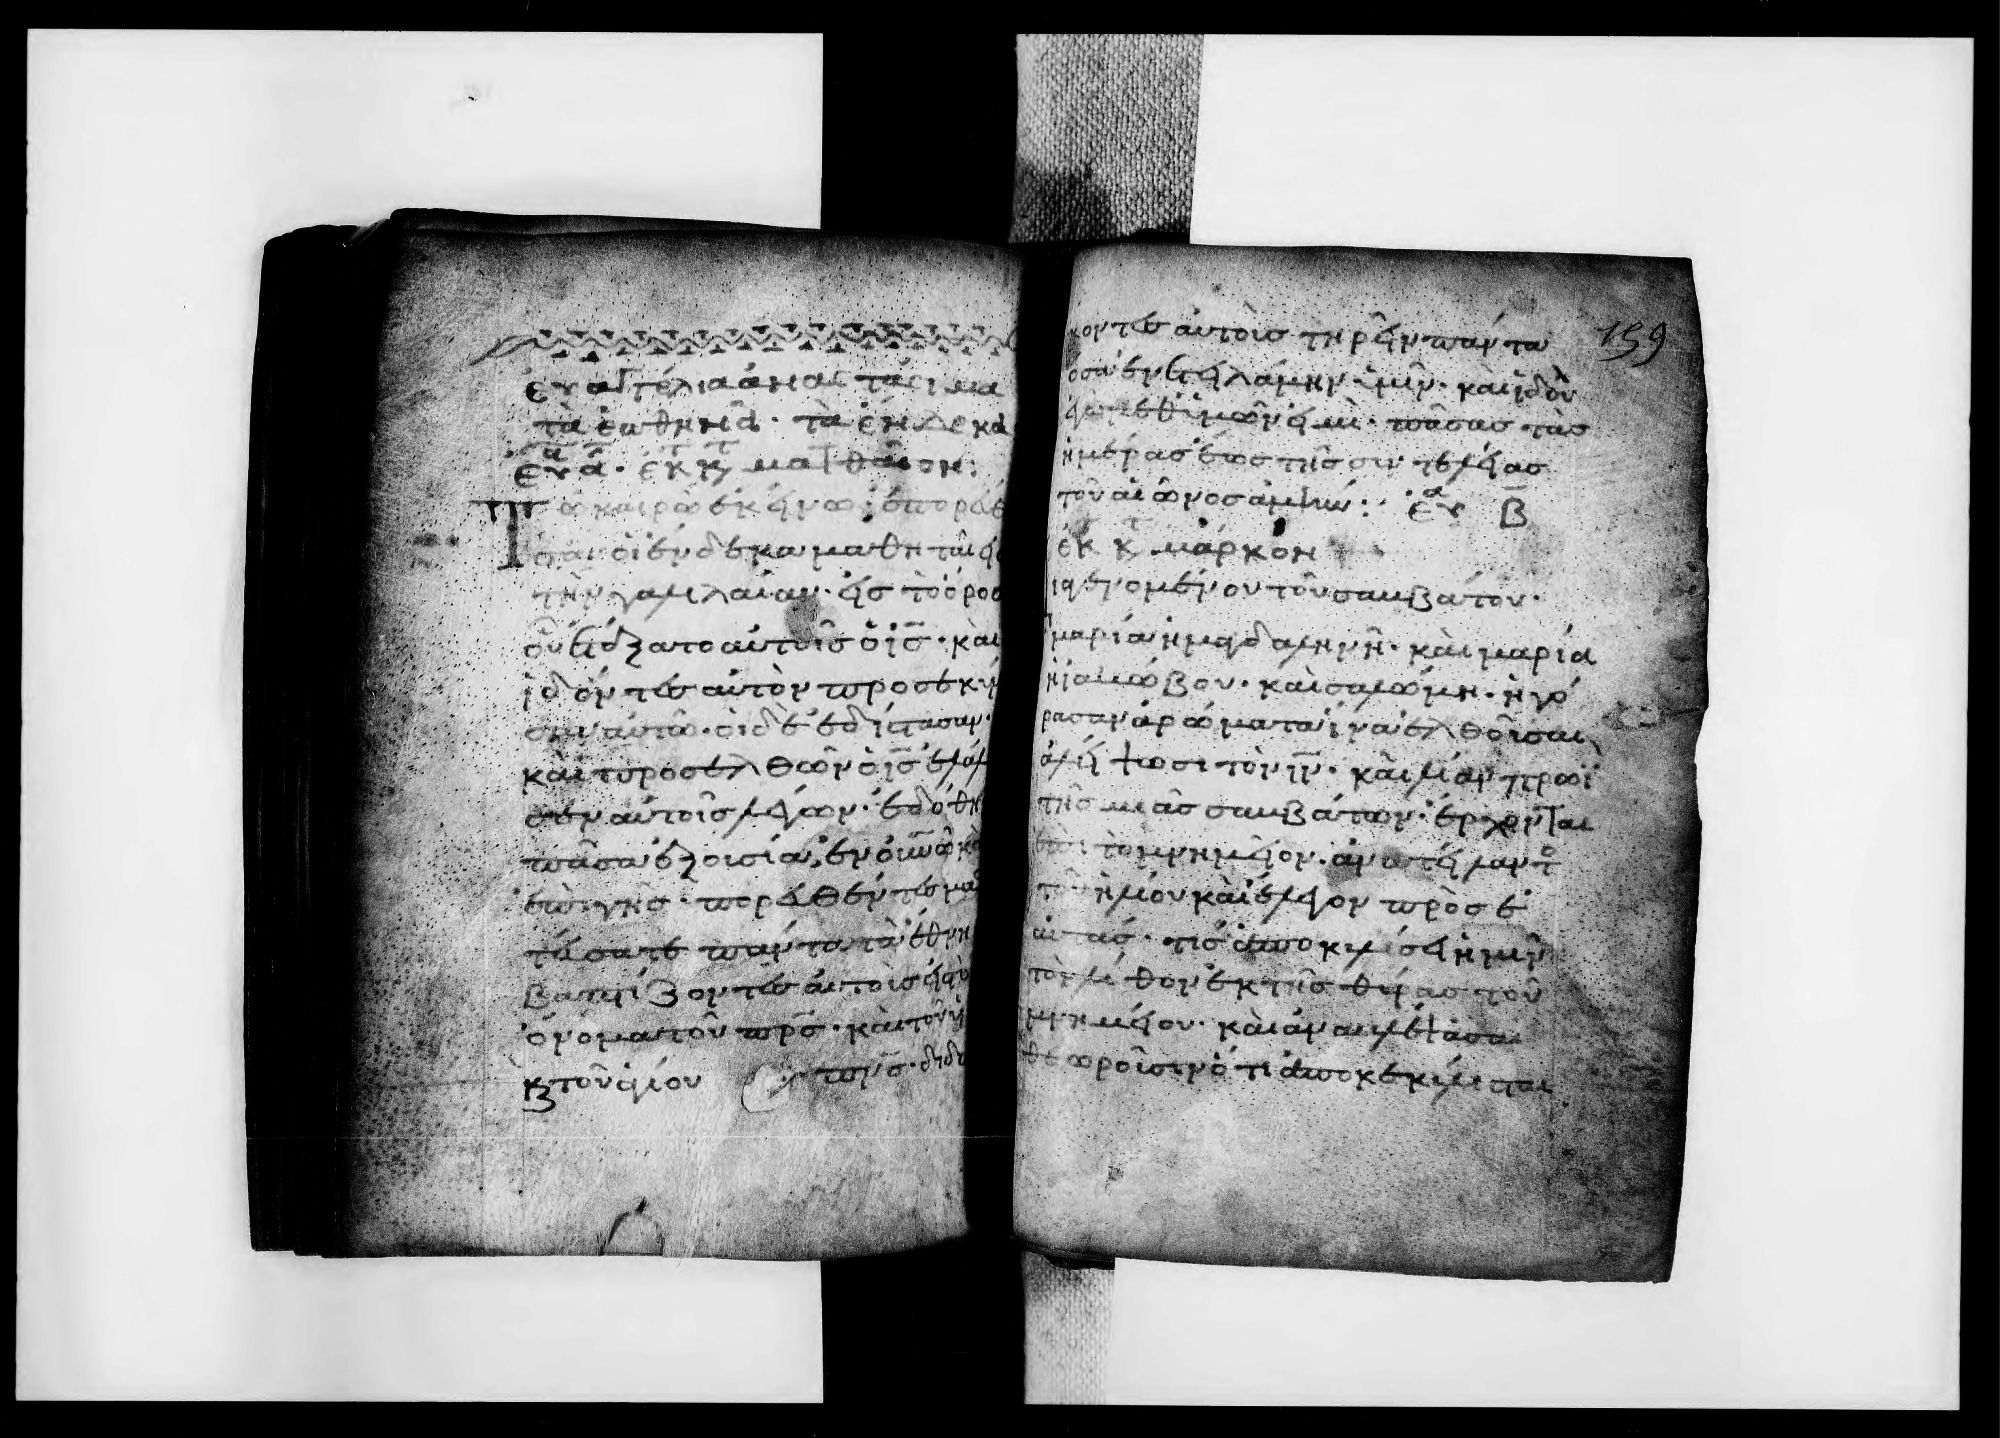 ἐυαγγέλια ἀναστάσιμα
τὰ ἑωθηνὰ · τὰ ἕνδεκα
ἐυα ά · ἐκ κτ ματθαῖον :
Τω καιρῶ ἐκείνω ἐπορεύ
σαι οἱ ἕνδεκα μαθηταὶ εἰς
τὴν γαλιλαίαν · εἰς τὸ ὄρος
οὗ ἐτάξατο αὐτοῖς ὁ ις · καὶ
ἰδόντες αὐτὸν προσεκύ
σαν αὐτῶ · οἱ δὲ ἐδίστασαν ·
καὶ προσελθὼν ὁ ις ἐλάλ
σεν αὐτοῖς λέγων · ἐδόθη
πᾶσα ἐξοισία, ἐν οὐνῶ κὰ
ἐπὶ γῆς · πορευθέντες μα
τεύσατε πάντα τὰ ἔθνη
βαπτίζοντες ἀυτοὺς εἰς τὸ
ὄνομα τοῦ πρς · καὶ τοῦ υ
κ τοῦ ἁγίου πνς · διδά
κοντες ἀυτοὶς τηρεῖν πάντα
ὅσα ἐνετειλάμην ὑμῖν · καὶ ἰδοὺ
ἐγὼ μεθ ὑμῶν εἰμὶ · πᾶσας τὰσ
ἡμέρας ἕως τῆς συντελείας
τοῦ αἰῶνος ἀμήν : ἐυα Β
ἐκ κτ μάρκον
ιαγενομένου τοῦ σαββάτου ·
μαρία ἡ μαγδαληνῆ · καὶ μαρία
ἡ ἰακώβου · καὶ σαλώμη · ἠγό
ρασαν ἀρώματα ἵνα ἐλθοῖσαι
ἀλείψωσι τὸν ιν · καὶ λίαν πρωῒ
τῆς μιᾶς σαββάτων · ἔρχονται
ἐπὶ τὸ μνημεῖον · ἀνατείλαντο
τοῦ ἡλίου καὶ ἔλεγον πρὸς ἑ
αυτάς · τίς ἀποκυλίσει ἡμῖν
τὸν λίθον ἐκ τῆς θύρας τοῦ
μνημείου · καὶ ἀναβλέψασαι
θεωροῖσιν ὅτι ἀποκεκύλισται
159